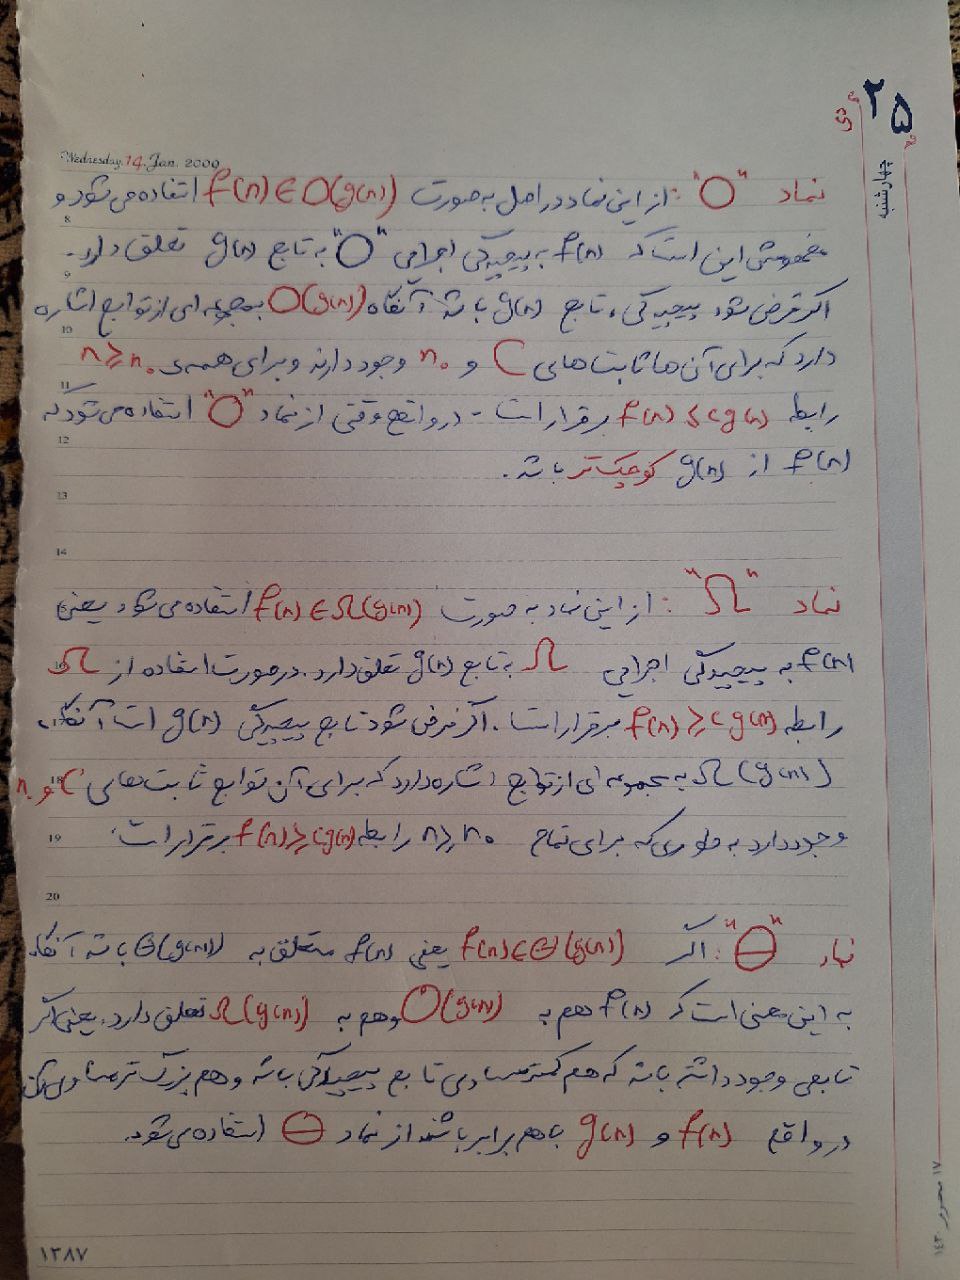 ۲۵
دی
چهارشنبه
Wednesday, 14, Jan. 2009
نماد "O" : از این نماد در اصل به صورت f(n) ∈ O(g(n)) استفاده می‌شود و
مفهومش این است که f(n) به پیچیدگی اجرایی "O" به تابع g(n) تعلق دارد.
8
اگر فرض شود پیچیدگی، تابع g(n) باشد آنگاه O(g(n)) به مجموعه ای از توابع اشاره
9
دارد که برای آن ها ثابت های C و n₀ وجود دارند و برای همه‌ی n≥n₀
10
رابطه f(n) ≤ cg(n) برقرار است - در واقع وقتی از نماد "O" استفاده می‌شود که
11
f(n) از g(n) کوچک‌تر باشد.
12
13
14
نماد "Ω" : از این نماد به صورت f(n) ∈ Ω(g(n)) استفاده می‌شود یعنی
f(n) به پیچیدگی اجرایی Ω به تابع g(n) تعلق دارد. در صورت استفاده از Ω
16
رابطه f(n) ≥ cg(n) برقرار است. اگر فرض شود تابع پیچیدگی g(n) است آنگاه
Ω(g(n)) به مجموعه ای از توابع اشاره دارد که برای آن توابع ثابت های C و n₀
18
وجود دارد به طوری که برای تمام n≥n₀ رابطه f(n) ≥ cg(n) برقرار است.
19
20
نماد "θ" : اگر f(n) ∈ θ(g(n)) یعنی f(n) متعلق به θ(g(n)) باشد آنگاه
به این معنی است که f(n) هم به O(g(n)) و هم به Ω(g(n)) تعلق دارد. یعنی اگر
تابعی وجود داشته باشد که هم کمتر مساوی تابع پیچیدگی باشد و هم بزرگ‌تر مساوی آن
در واقع f(n) و g(n) با هم برابر باشند از نماد θ استفاده می‌شود.
۱۳۸۷
۱۷ محرم ۱۴۳۰